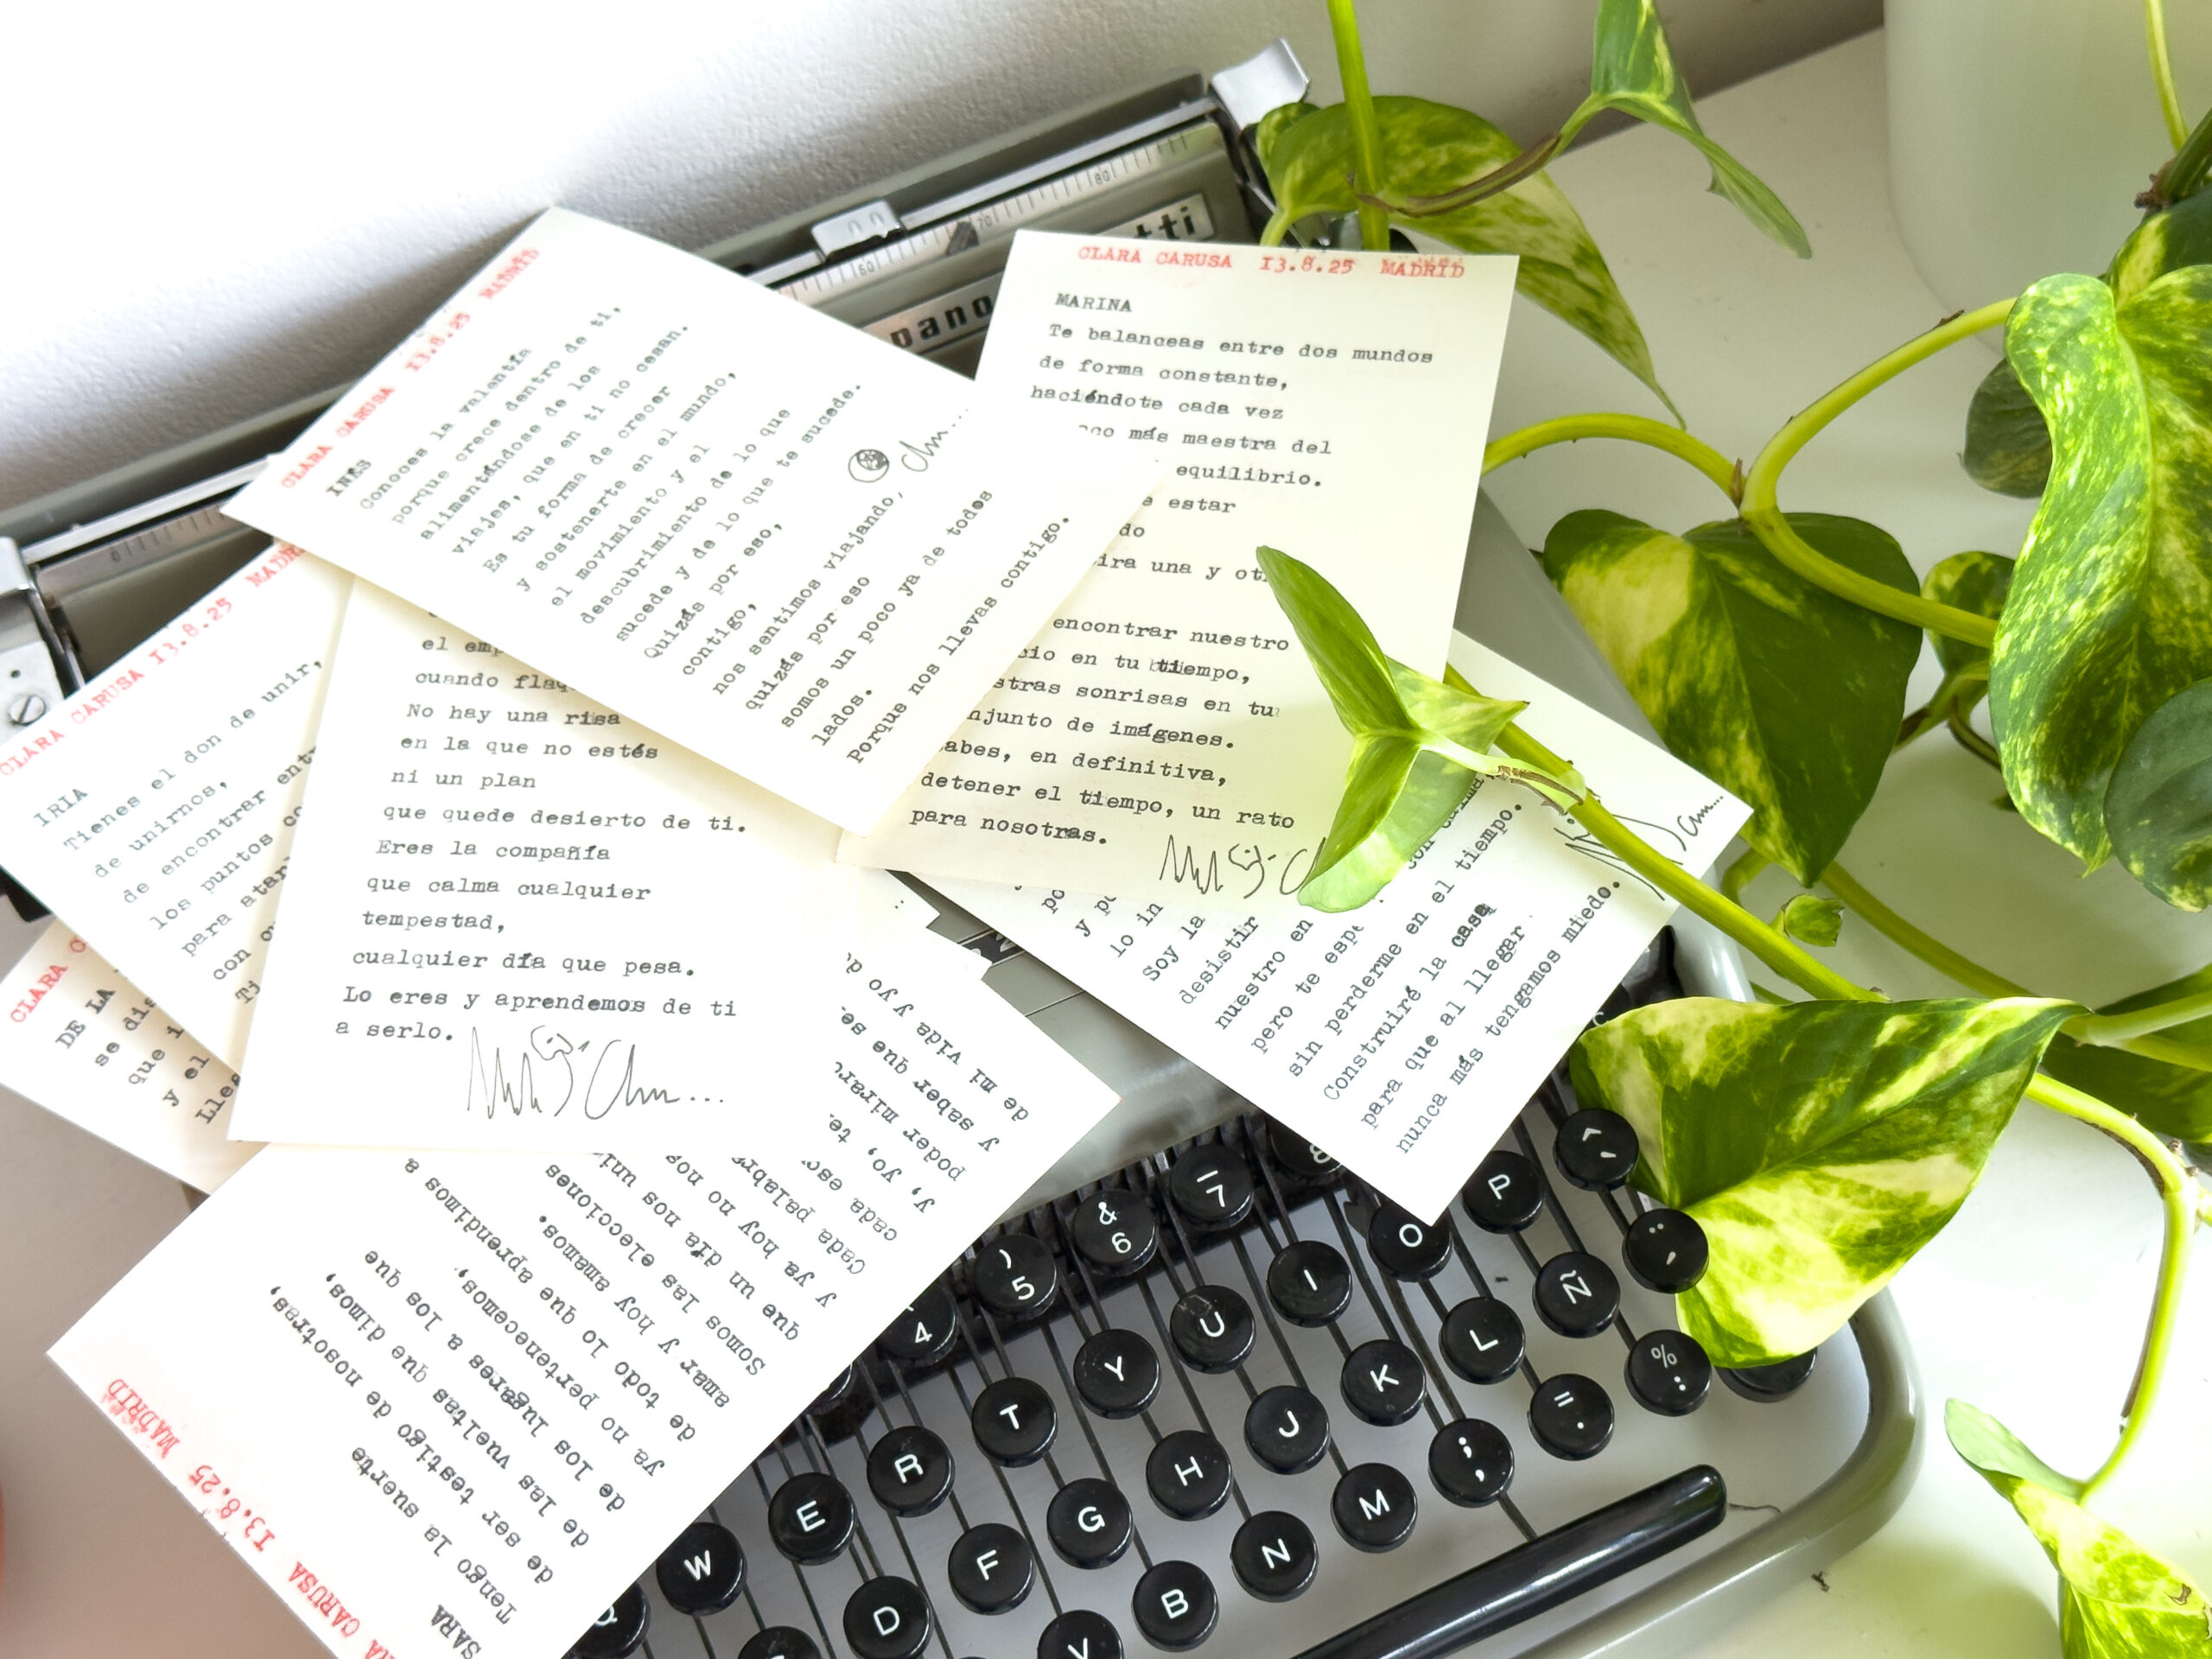 CLARA CARUSA 13.8.25 MADRID
INES
Conoces la valentía
porque crece dentro de ti,
alimentándose de los
viajes, que en ti no cesan.
Es tu forma de crecer
y sostenerte en el mundo,
el movimiento y el
descubrimiento de lo que
sucede y de lo que te sucede.
Quizás por eso,
contigo,
nos sentimos viajando,
quizás por eso
somos un poco ya de todos
lados.
Porque nos llevas contigo.
CLARA CARUSA 13.8.25 MADRID
MARINA
Te balanceas entre dos mundos
de forma constante,
haciéndote cada vez
más maestra del
equilibrio.
estar
una y
encontrar nuestro
en tu tiempo,
sonrisas en tu
de imágenes.
en definitiva,
detener el tiempo, un rato
para nosotras.
CLARA CARUSA 13.8.25
IRIA
Tienes el don de unir,
de unirnos,
de encontrar
los puntos
para
con
CLARA
DE LA
se
que
y el
el
cuando
No hay una risa
en la que no estés
ni un plan
que quede desierto de ti.
Eres la compañía
que calma cualquier
tempestad,
cualquier día que pesa.
Lo eres y aprendemos de ti
a serlo.
y
lo
Soy la
desistir
nuestro en
pero te
sin perderme en el tiempo.
Construiré la casa
para que al llegar
nunca más tengamos miedo.
CARUSA 13.8.25 MADRID
SARA
Tengo la suerte
de ser testigo de nosotras,
de las vueltas que dimos,
de los lugares a los que
ya no pertenecemos,
de todo lo que aprendimos a
amar y hoy amamos.
Somos las elecciones
que un día nos
y ya hoy no nos
Cada
cada
y, yo, te.
poder
y saber que se.
de mi vida y yo
pano
tti
60
70
80
4
) 5
& 6
7
8
W
E
R
T
Y
U
I
O
P
D
F
G
H
J
K
L
Ñ
V
B
N
M
; ,
= .
% :